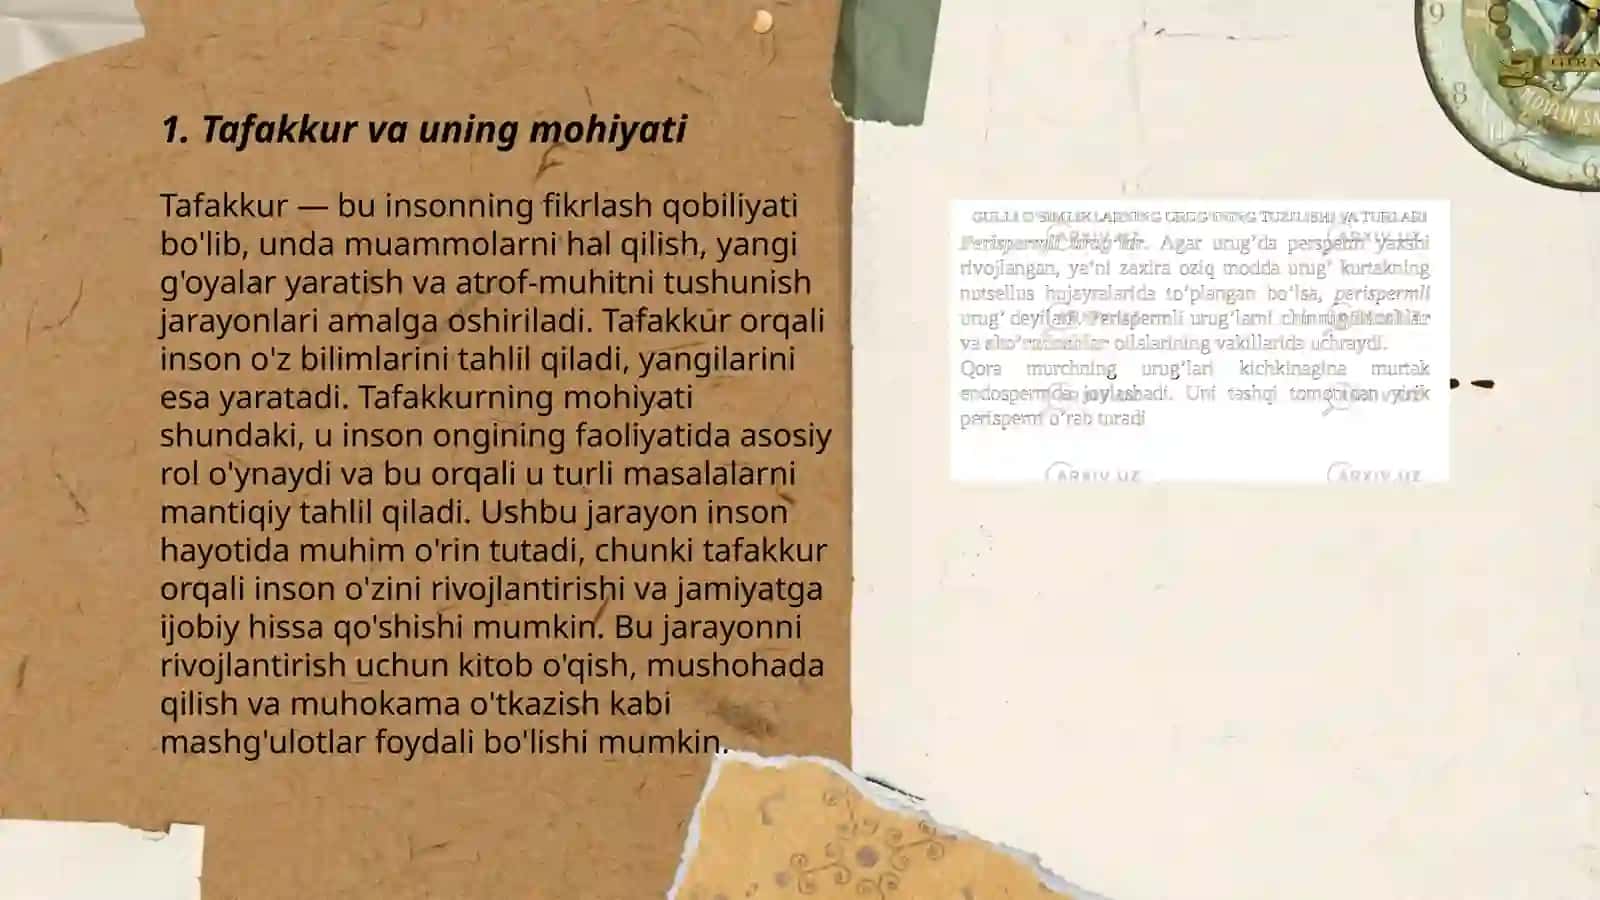 1. Tafakkur va uning mohiyati
Tafakkur — bu insonning fikrlash qobiliyati
bo'lib, unda muammolarni hal qilish, yangi
g'oyalar yaratish va atrof-muhitni tushunish
jarayonlari amalga oshiriladi. Tafakkur orqali
inson o'z bilimlarini tahlil qiladi, yangilarini
esa yaratadi. Tafakkurning mohiyati
shundaki, u inson ongining faoliyatida asosiy
rol o'ynaydi va bu orqali u turli masalalarni
mantiqiy tahlil qiladi. Ushbu jarayon inson
hayotida muhim o'rin tutadi, chunki tafakkur
orqali inson o'zini rivojlantirishi va jamiyatga
ijobiy hissa qo'shishi mumkin. Bu jarayonni
rivojlantirish uchun kitob o'qish, mushohada
qilish va muhokama o'tkazish kabi
mashg'ulotlar foydali bo'lishi mumkin.
9
8
6
MOULIN
GULLI O'SIMLIKLARNING URUG'INING TUZILISHI VA TURLARI
Perispermli urug'lar. Agar urug'da persperm yaxshi
rivojlangan, ya'ni zaxira oziq modda urug' kurtakning
nutsellus hujayralarida to'plangan bo'lsa, perispermli
urug' deyiladi. Perispermli urug'larni
va oilalarining vakillarida uchraydi.
Qora murchning urug'lari kichkinagina murtak
endospermda joylashadi. Uni tashqi tomonidan yirik
perisperm o'rab turadi
ARXIV.UZ
ARXIV.UZ